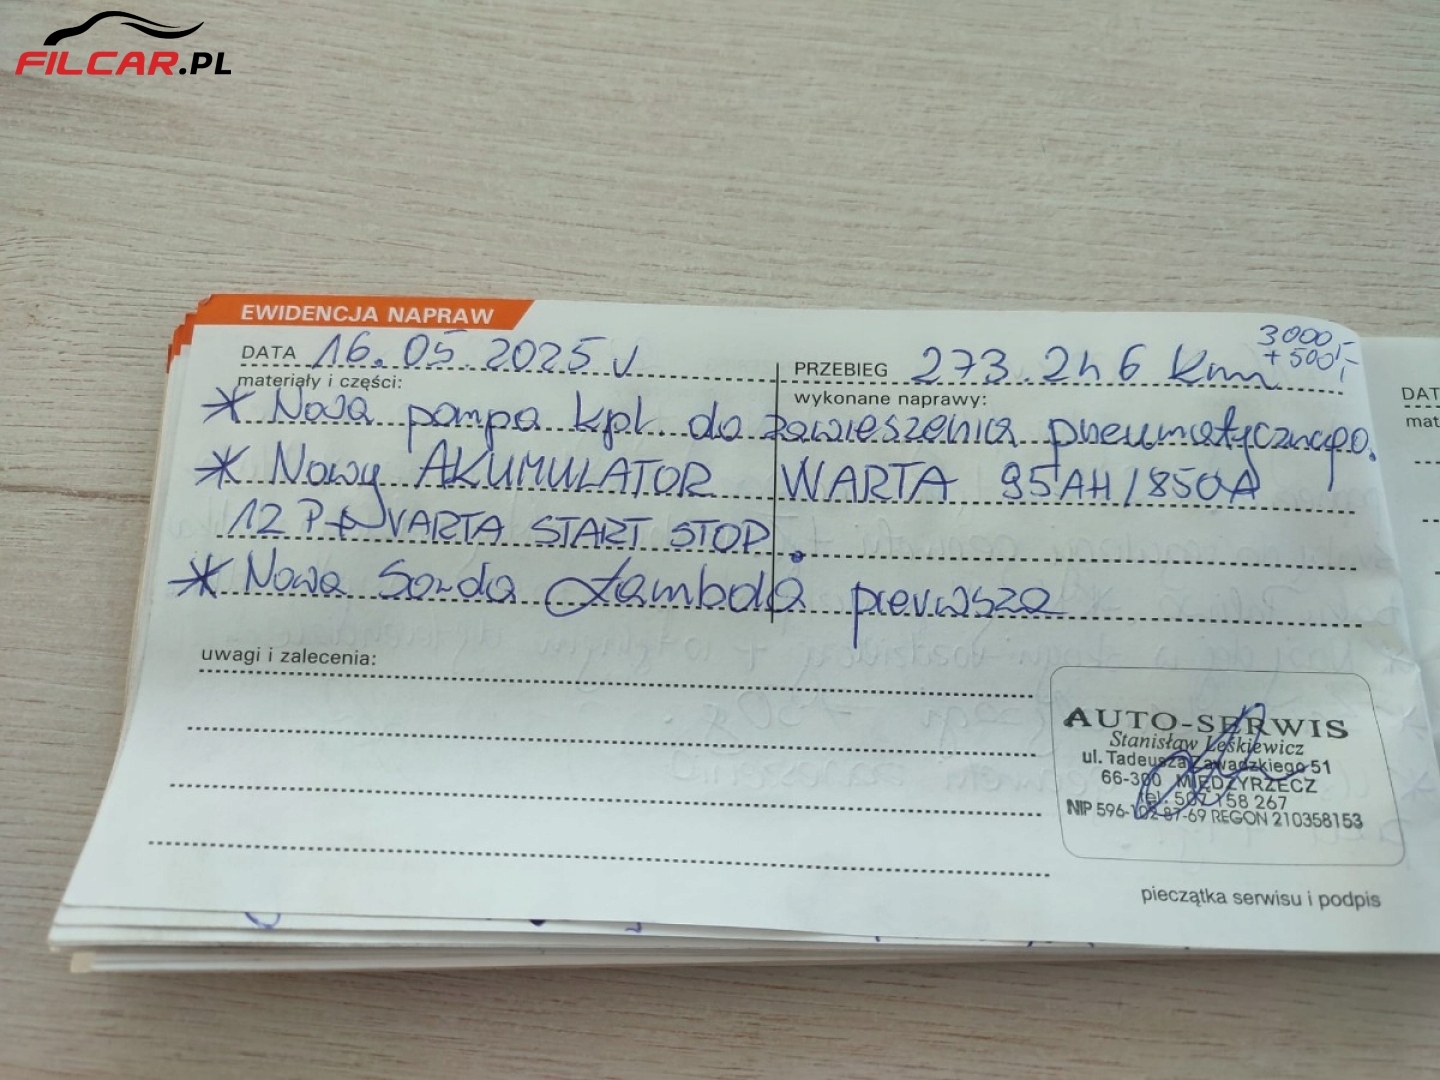 FILCAR.PL
EWIDENCJA NAPRAW
3000,-
+ 500,-
DATA 16.05.2025 r PRZEBIEG 273.246 Km
materiały i części: wykonane naprawy:
* Nowa pompa kpl. do zawieszenia pneumatycznego.
* Nowy AKUMULATOR WARTA 95AH/850A
12 P+ VARTA START STOP.
* Nowa Sonda Lambda pierwsza
uwagi i zalecenia:
AUTO-SERWIS
Stanisław Leśkiewicz
ul. Tadeusza Zawadzkiego 51
66-300 MIĘDZYRZECZ
tel. 507 158 267
NIP 596-102-87-69 REGON 210358153
pieczątka serwisu i podpis
DAT
mat